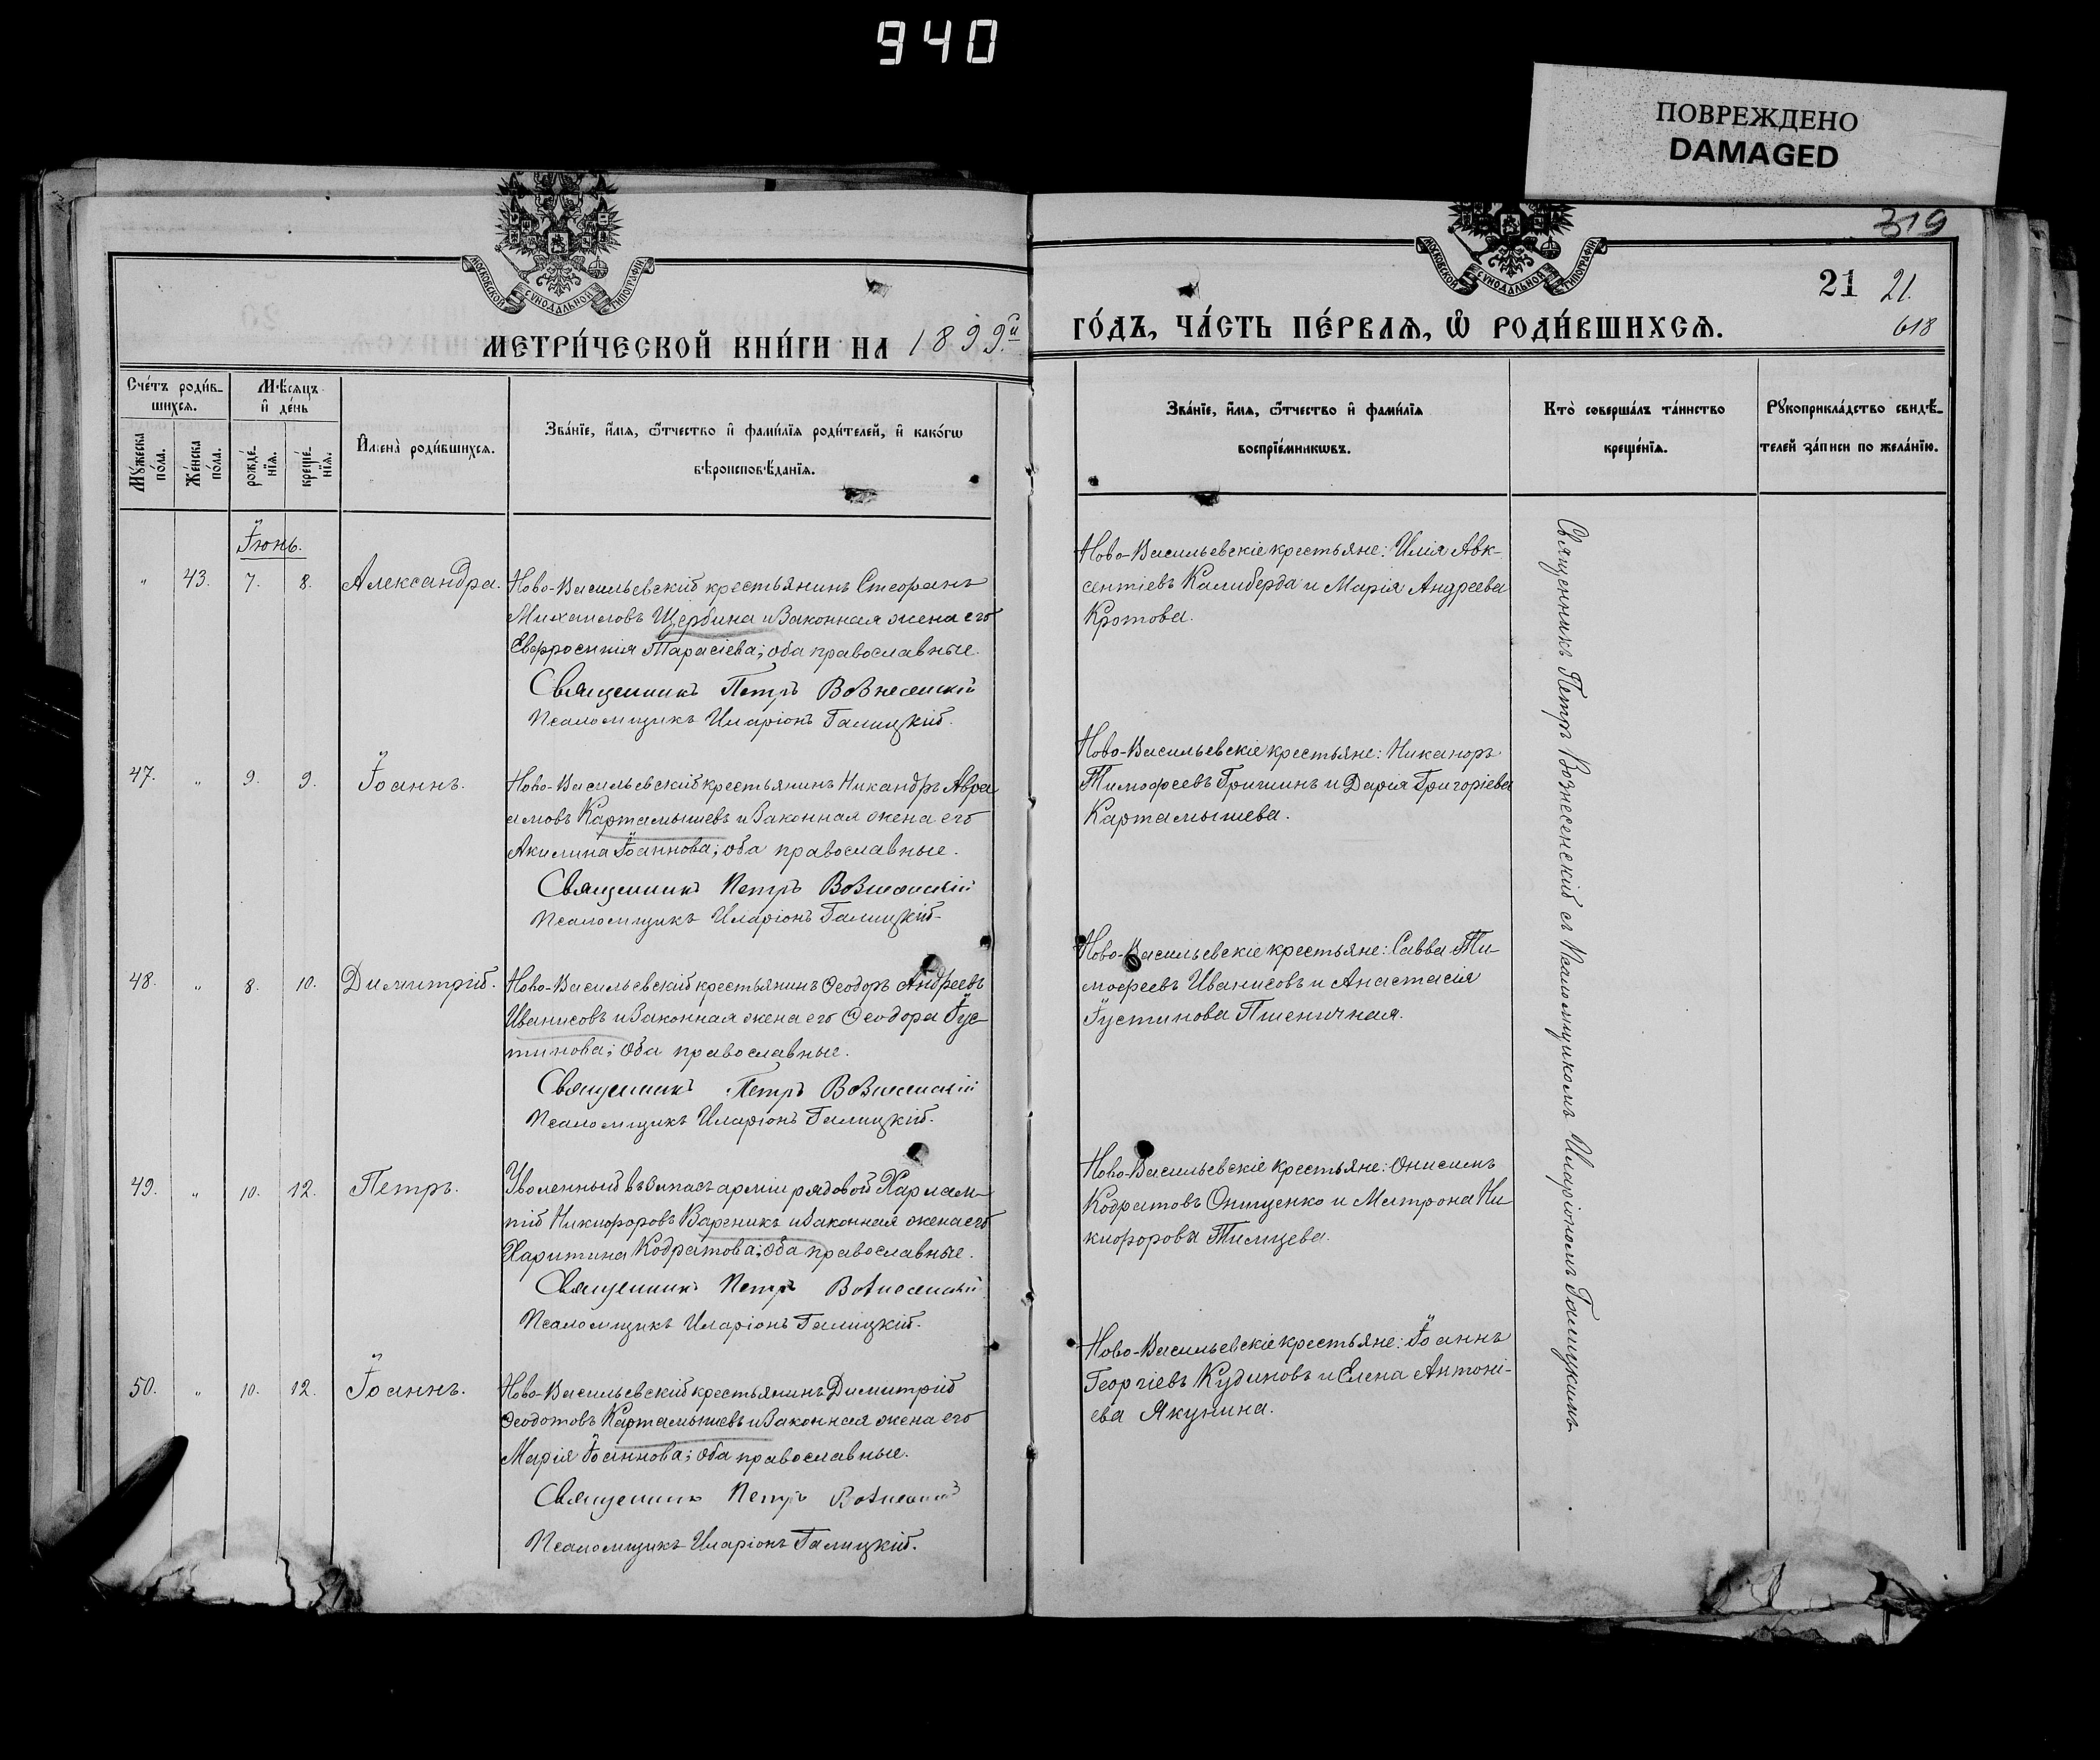 940
ПОВРЕЖДЕНО
DAMAGED
319
МОСКОВСКОЙ СѴНОДАЛЬНОЙ ТИПОГРАФІИ
МОСКОВСКОЙ СѴНОДАЛЬНОЙ ТИПОГРАФІИ
21 21.
618
МЕТРИ́ЧЕСКОЙ КНИ́ГИ НА 1899й
ГО́ДЪ, ЧА́СТЬ ПЕ́РВАѦ, Ѡ҆ РОДИ́ВШИХСѦ.
Сче́тъ роди́в-
шихсѧ.
Мꙋ́жеска
по́ла.
Же́нска
по́ла.
Мѣ́сѧцъ
и҆ де́нь
рожде́-
нїѧ.
креще́-
нїѧ.
И҆мена̀ роди́вшихсѧ.
Зва́нїе, и҆́мѧ, ѻ҆́тчество и҆ фами́лїѧ роди́телей, и҆ како́гѡ
вѣроисповѣ́данїѧ.
Зва́нїе, и҆́мѧ, ѻ҆́тчество и҆ фами́лїѧ
воспрїе́мникѡвъ.
Кто̀ соверша́лъ та́инство
креще́нїѧ.
Рꙋкоприкла́дство свидѣ́-
телей за́писи по жела́нїю.
Іюнь.
„ 43. 7. 8. Александра.
Ново-Васильевскій крестьянинъ Стефанъ
Михаиловъ Щербина и законная жена его
Евфросинія Тарасіева; оба православные.
Священникъ Петръ Вознесенскій
Псаломщикъ Иларіонъ Галицкій.
Ново-Васильевскіе крестьяне: Илія Авк-
сентіевъ Калиберда и Марія Андреева
Кротова.
47. „ 9. 9. Іоаннъ.
Ново-Васильевскій крестьянинъ Никандръ Авра
амовъ Картамышевъ и законная жена его
Акилина Іоаннова; оба православные.
Священникъ Петръ Вознесенскій
Псаломщикъ Иларіонъ Галицкій.
Ново-Васильевскіе крестьяне: Никаноръ
Тимофеевъ Гришинъ и Дарія Григоріева
Картамышева.
48. „ 8. 10. Димитрій.
Ново-Васильевскій крестьянинъ Ѳеодоръ Андреевъ
Иванисовъ и законная жена его Ѳеодора Іус-
тинова; оба православные.
Священникъ Петръ Вознесенскій
Псаломщикъ Иларіонъ Галицкій.
Ново-Васильевскіе крестьяне: Савва Ти-
мофеевъ Иванисовъ и Анастасія
Іустинова Пшеничная.
49. „ 10. 12. Петръ.
Уволенный въ запасъ арміи рядовой Харлам-
пій Никифоровъ Вареникъ и законная жена его
Харитина Кодратова; оба православные.
Священникъ Петръ Вознесенскій
Псаломщикъ Иларіонъ Галицкій.
Ново-Васильевскіе крестьяне: Онисимъ
Кодратовъ Онищенко и Матрона Ни
кифорова
50. „ 10. 12. Іоаннъ.
Ново-Васильевскій крестьянинъ Димитрій
Ѳеодотовъ Картамышевъ и законная жена его
Марія Іоаннова; оба православные.
Священникъ Петръ Вознесенскій
Псаломщикъ Иларіонъ Галицкій.
Ново-Васильевскіе крестьяне: Іоаннъ
Георгіевъ Кудиновъ и Елена Антоні-
ева Якунина.
Священникъ Петръ Вознесенскій съ Псаломщикомъ Иларіономъ Галицкимъ